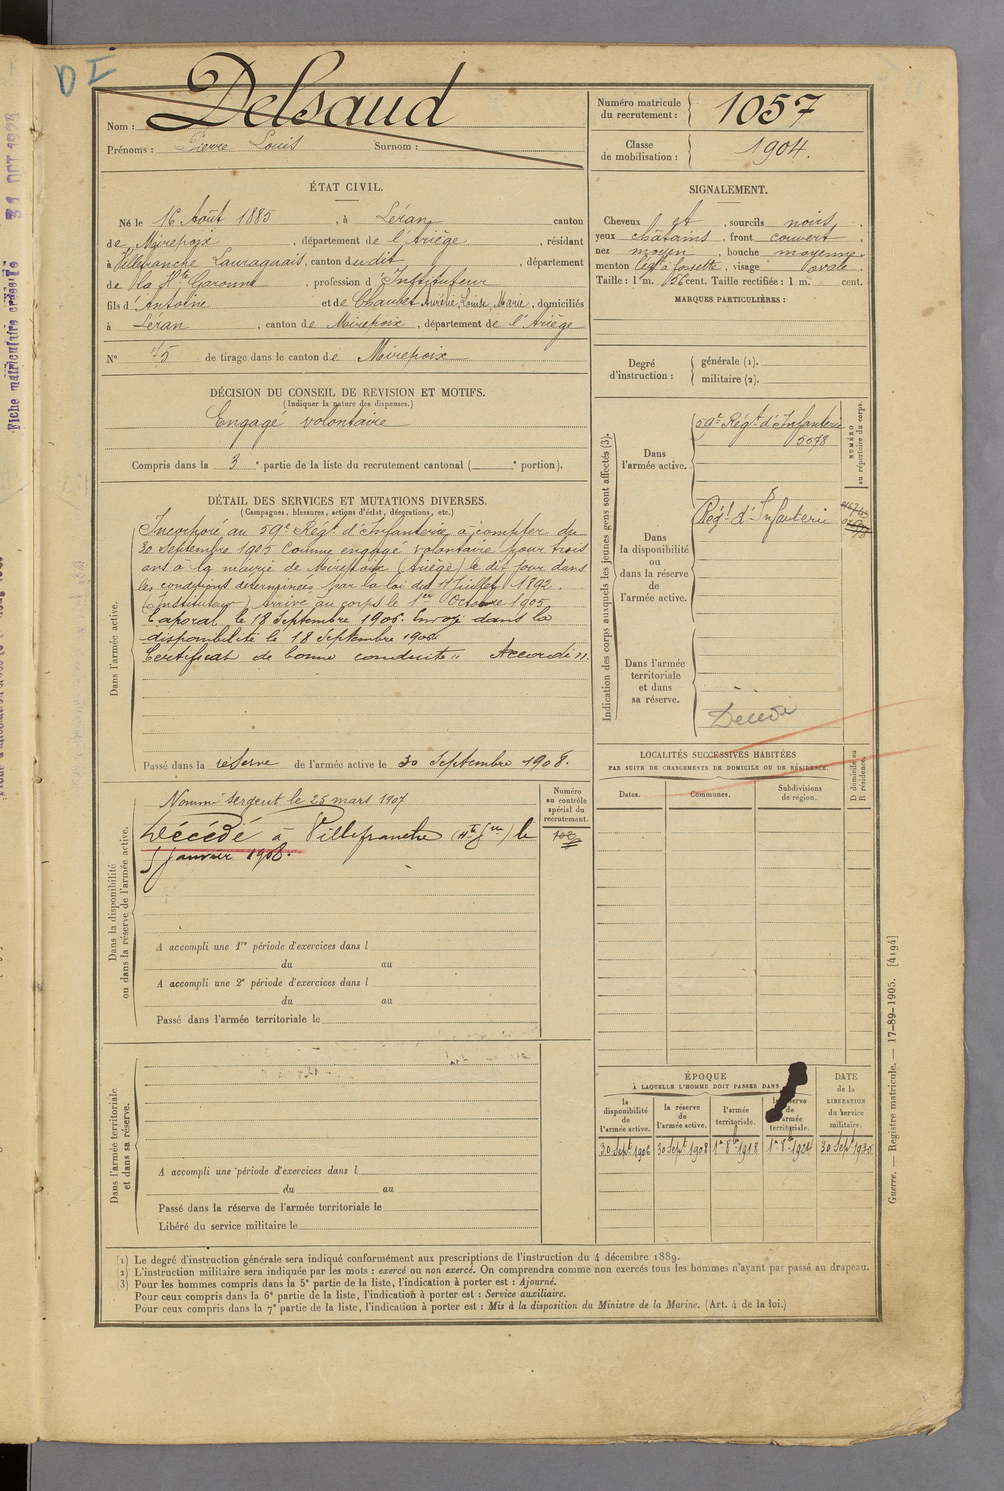 DI
Nom : Delsaud
Prénoms : Pierre Louis Surnom :
Numéro matricule du recrutement : 1057
Classe de mobilisation : 1904.
ÉTAT CIVIL.
Né le 16 Août 1885, à Léran canton
de Mirepoix, département de l'Ariège, résidant
à Villefranche Lauraguais, canton dudit, département
de la Hte Garonne, profession d'Instituteur
fils d'Antoine et de Chaubet Aurélie, Louise, Marie, domiciliés
à Léran, canton de Mirepoix, département de l'Ariège
N° 75 de tirage dans le canton de Mirepoix
DÉCISION DU CONSEIL DE REVISION ET MOTIFS.
(Indiquer la nature des dispenses.)
Engagé volontaire
Compris dans la 3e partie de la liste du recrutement cantonal ( e portion).
DÉTAIL DES SERVICES ET MUTATIONS DIVERSES.
(Campagnes, blessures, actions d'éclat, décorations, etc.)
Dans l'armée active.
Incorporé au 59e Régt d'Infanterie, à compter du
30 Septembre 1905 Comme engagé volontaire pour trois
ans à la mairie de Mirepoix (Ariège) le dit jour dans
les conditions déterminées par la loi du 11 Juillet 1892.
(Instituteur) Arrivé au corps le 1er Octobre 1905
Caporal le 18 Septembre 1906. Envoyé dans la
disponibilité le 18 Septembre 1906.
Certificat de bonne conduite " Accordé".
Passé dans la réserve de l'armée active le 30 Septembre 1908.
Dans la disponibilité
ou dans la réserve de l'armée active.
Nommé Sergent le 25 mars 1907
Décédé à Villefranche (Hte Gne) le
5 janvier 1908.
Numéro au contrôle spécial du recrutement.
A accompli une 1re période d'exercices dans l
du au
A accompli une 2e période d'exercices dans l
du au
Passé dans l'armée territoriale le
Dans l'armée territoriale
et dans sa réserve.
A accompli une période d'exercices dans l
du au
Passé dans la réserve de l'armée territoriale le
Libéré du service militaire le
SIGNALEMENT.
Cheveux et, sourcils noirs,
yeux châtains, front couvert,
nez moyen, bouche moyenne
menton à fossette, visage ovale.
Taille : 1 m. 56 cent. Taille rectifiée : 1 m. cent.
MARQUES PARTICULIÈRES :
Degré d'instruction : générale (1).
militaire (2).
Indication des corps auxquels les jeunes gens sont affectés (3).
NUMÉRO au répertoire du corps.
Dans l'armée active.
59e Régt d'Infanterie
5078
Dans la disponibilité ou dans la réserve de l'armée active.
Régt d'Infanterie
Dans l'armée territoriale et dans sa réserve.
Décédé
LOCALITÉS SUCCESSIVES HABITÉES
PAR SUITE DE CHANGEMENTS DE DOMICILE OU DE RÉSIDENCE.
D domicile ou R résidence.
Dates. Communes. Subdivisions de région.
ÉPOQUE
À LAQUELLE L'HOMME DOIT PASSER DANS
la disponibilité de l'armée active. la réserve de l'armée active. l'armée territoriale. la réserve de l'armée territoriale.
DATE de la LIBÉRATION du service militaire.
30 Sept 1906 30 Sept 1908 1er 8bre 1918 1er 8bre 1924 30 Sept 1930
(1) Le degré d'instruction générale sera indiqué conformément aux prescriptions de l'instruction du 4 décembre 1889.
(2) L'instruction militaire sera indiquée par les mots : exercé ou non exercé. On comprendra comme non exercés tous les hommes n'ayant pas passé au drapeau.
(3) Pour les hommes compris dans la 5e partie de la liste, l'indication à porter est : Ajourné.
Pour ceux compris dans la 6e partie de la liste, l'indication à porter est : Service auxiliaire.
Pour ceux compris dans la 7e partie de la liste, l'indication à porter est : Mis à la disposition du Ministre de la Marine. (Art. 4 de la loi.)
Guerre. — Registre matricule. — 17-89-1905. [4194]
Fiche matriculaire créée le 31 OCT 1923